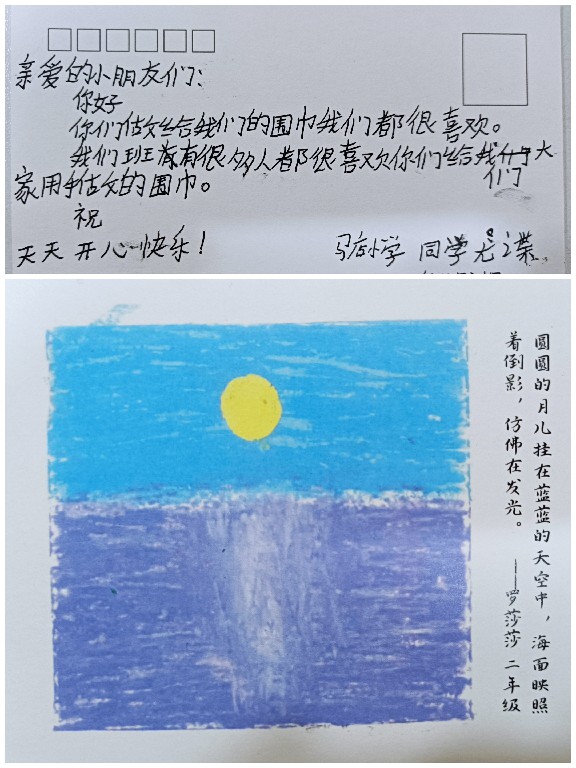 亲爱的小朋友们：
你好
你们做给我们的围巾我们都很喜欢。
我们班有很多人都很喜欢你们给大
们
家用手做的围巾。
祝
天天开心快乐！
马店小学 同学尤
圆圆的月儿挂在蓝蓝的天空中，海面映照
着倒影，仿佛在发光。 ——罗莎莎 二年级